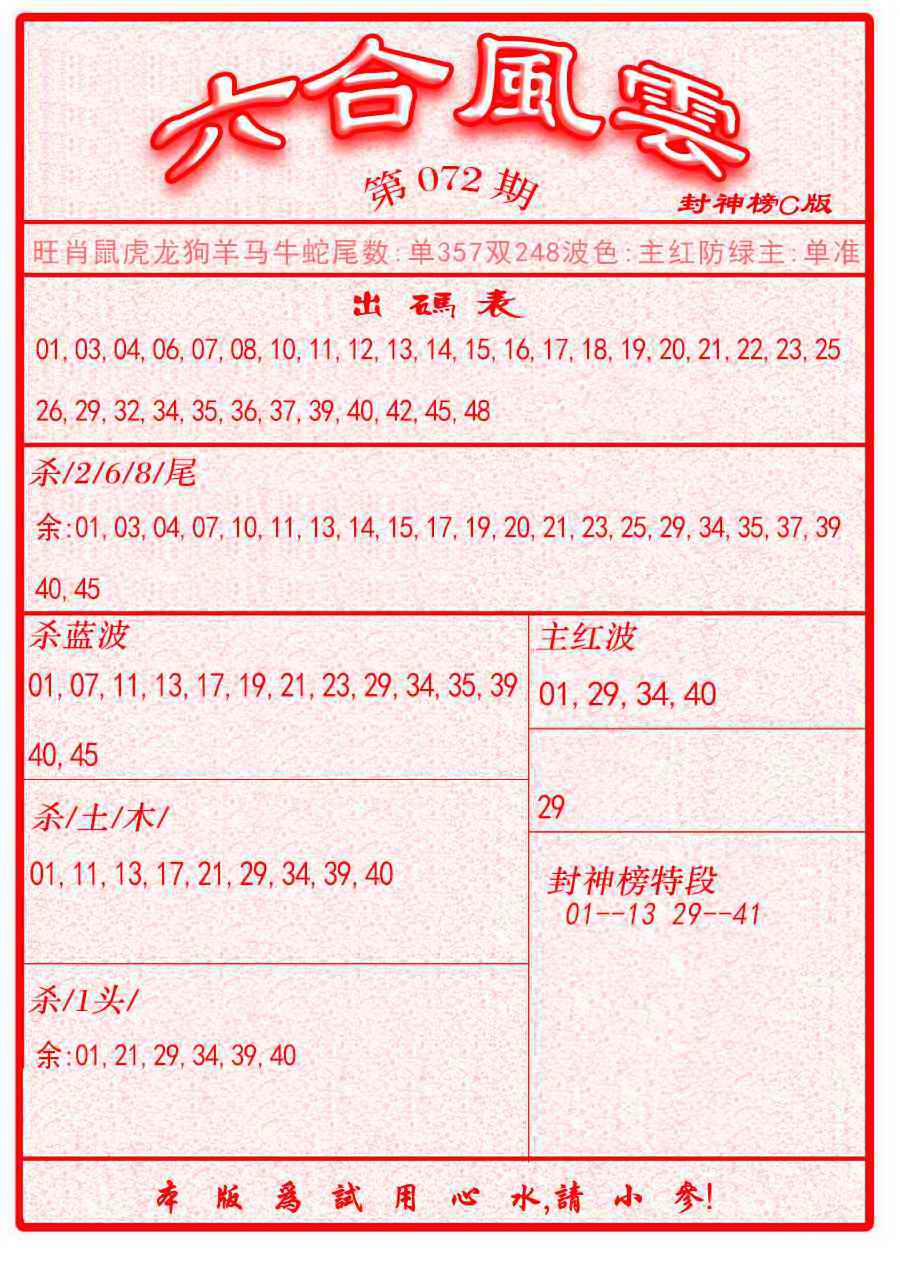 六合風雲
第072期
封神榜C版
旺肖鼠虎龙狗羊马牛蛇尾数:单357双248波色:主红防绿主:单准
出碼表
01,03,04,06,07,08,10,11,12,13,14,15,16,17,18,19,20,21,22,23,25
26,29,32,34,35,36,37,39,40,42,45,48
杀/2/6/8/尾
余:01,03,04,07,10,11,13,14,15,17,19,20,21,23,25,29,34,35,37,39
40,45
杀蓝波
01,07,11,13,17,19,21,23,29,34,35,39
40,45
杀/土/木/
01,11,13,17,21,29,34,39,40
杀/1头/
余:01,21,29,34,39,40
主红波
01,29,34,40
29
封神榜特段
01--13 29--41
本版爲試用心水,請小參!